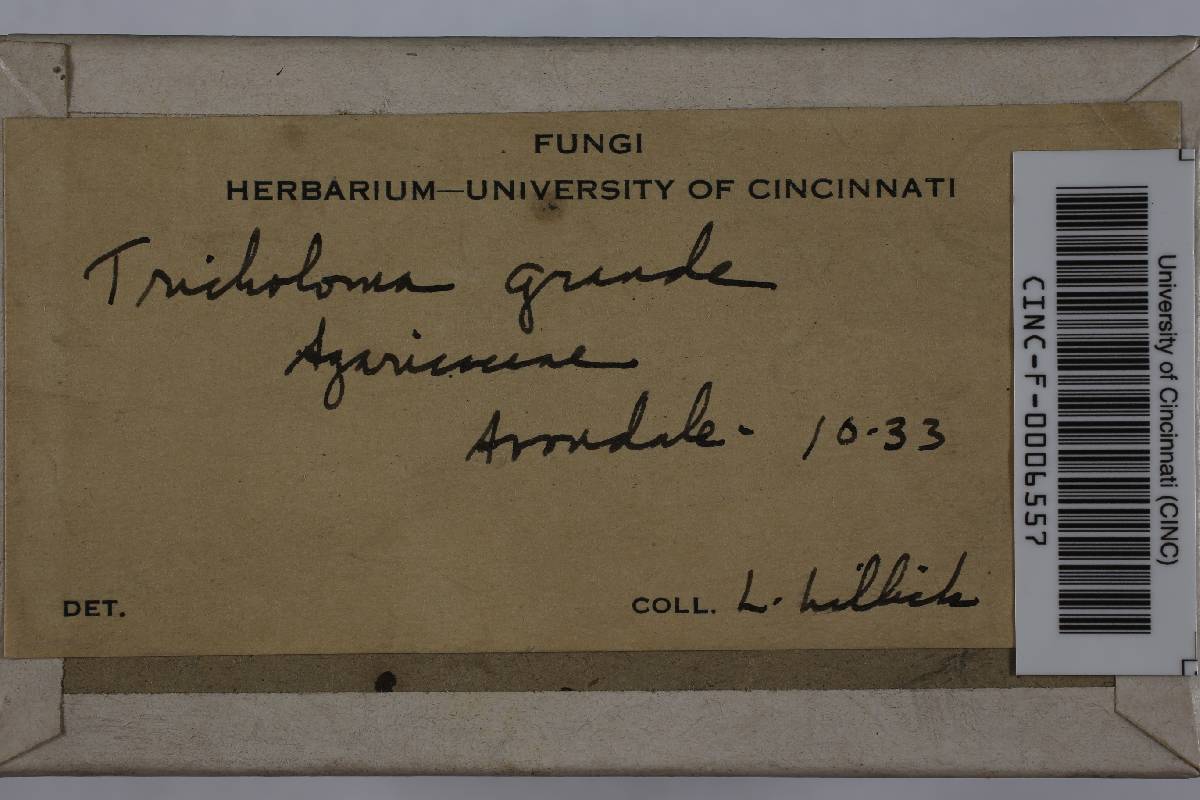 FUNGI
HERBARIUM—UNIVERSITY OF CINCINNATI
Tricholoma grande
Agaricaceae
Avondale - 10-33
DET.
COLL. L.
University of Cincinnati (CINC)
CINC-F-0006557